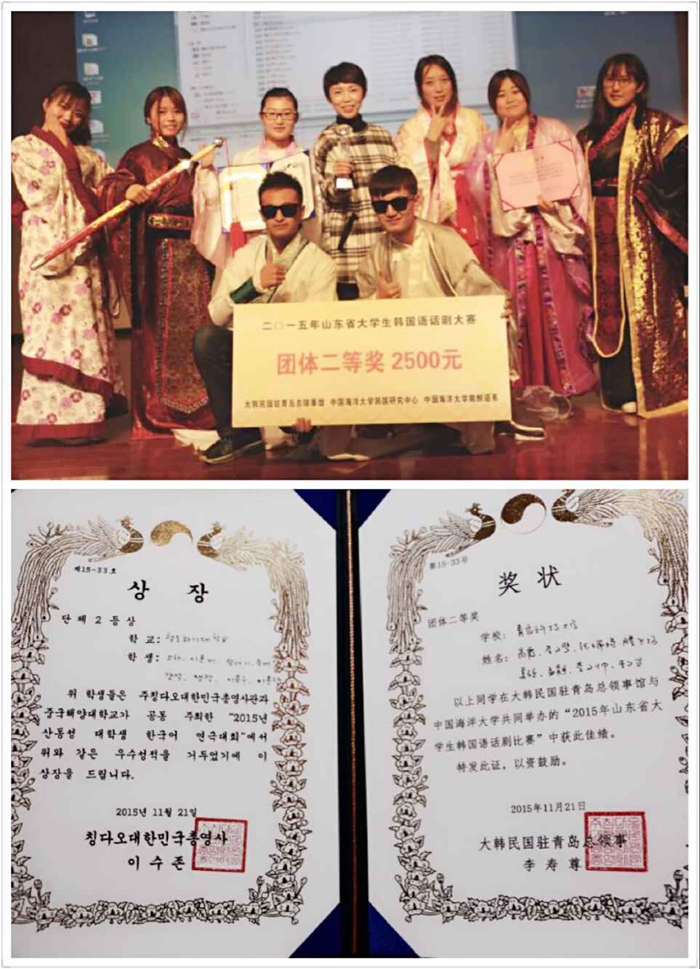 二〇一五年山东省大学生韩国语话剧大赛
团体二等奖 2500元
大韩民国驻青岛总领事馆 中国海洋大学韩国研究中心 中国海洋大学朝鲜语系
제15-33호
상 장
단체 2등상
학 교:
학 생:
위 학생들은 주칭다오대한민국총영사관과
중국해양대학교가 공동 주최한 "2015년
산동성 대학생 한국어 연극대회"에서
위와 같은 우수성적을 거두었기에 이
상장을 드립니다.
2015년 11월 21일
칭다오대한민국총영사
이 수 존
第15-33号
奖状
团体二等奖
学校:
姓名:
以上同学在大韩民国驻青岛总领事馆与
中国海洋大学共同举办的“2015年山东省大
学生韩国语话剧比赛”中获此佳绩。
特发此证,以资鼓励。
2015年11月21日
大韩民国驻青岛总领事
李寿尊